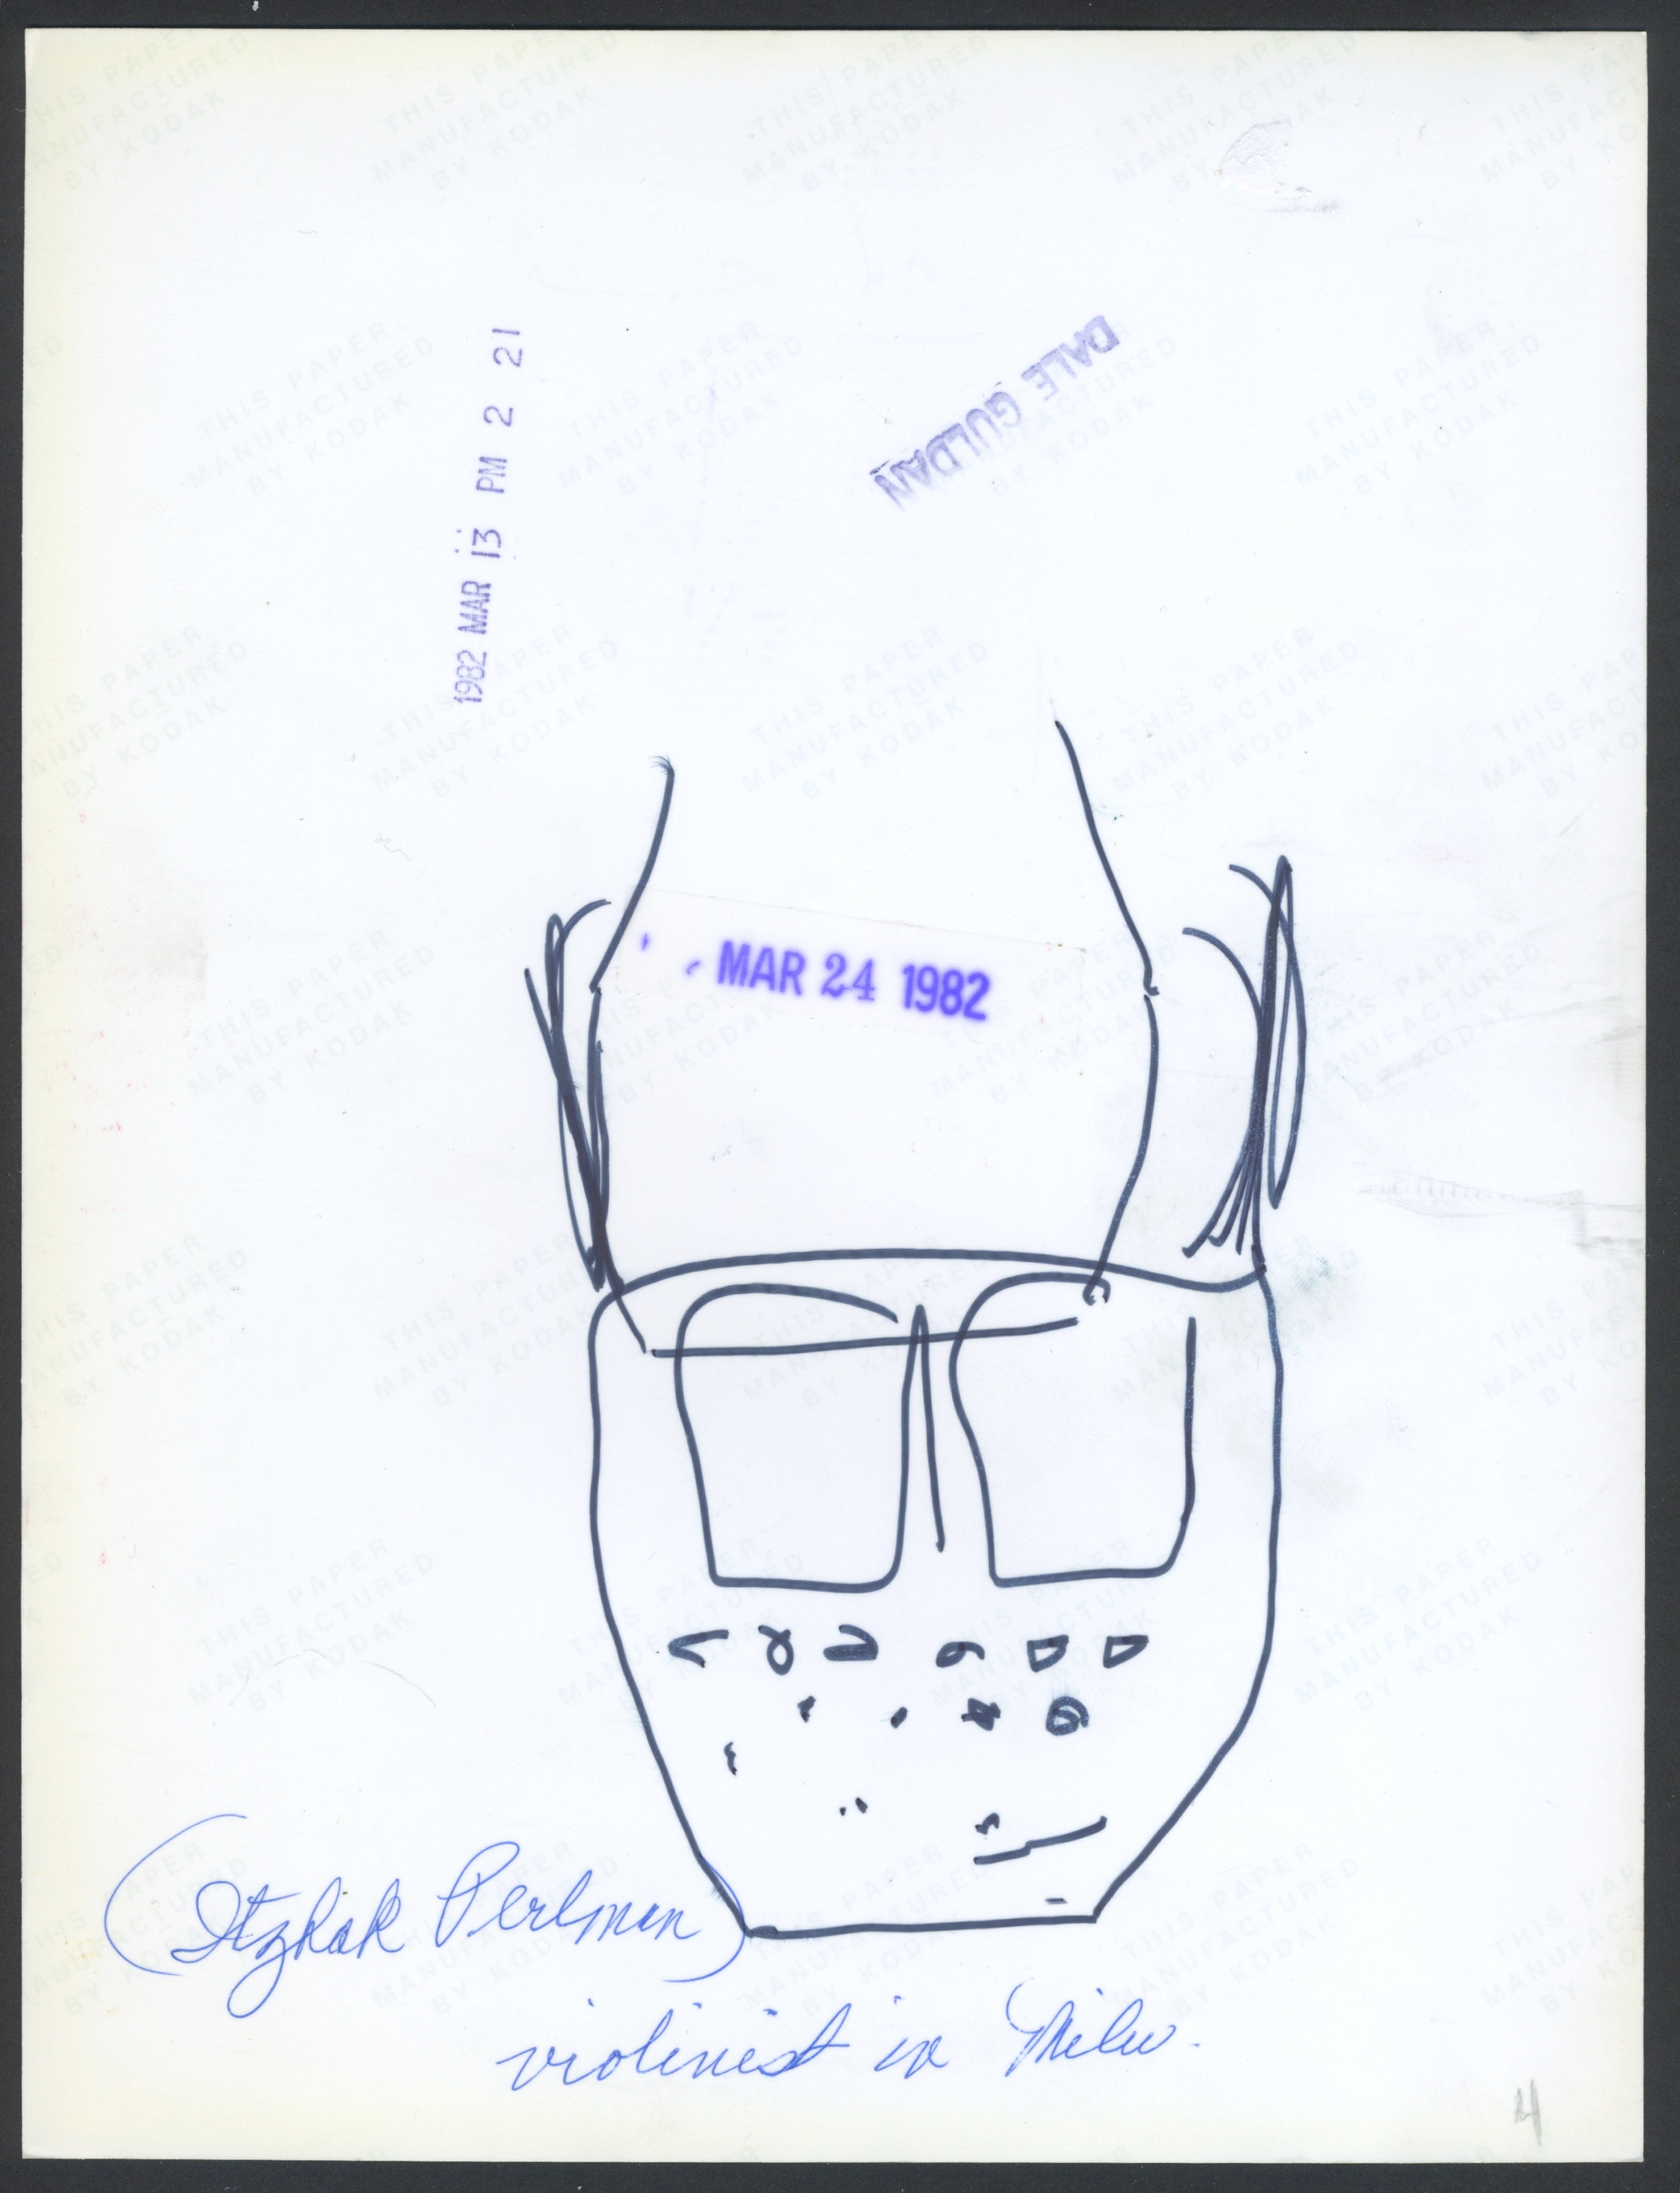 1982 MAR 13 PM 2 21
DALE GULDAN
MAR 24 1982
(Itzhak Perlman)
violinist in Milw.
4
THIS PAPER
MANUFACTURED
BY KODAK